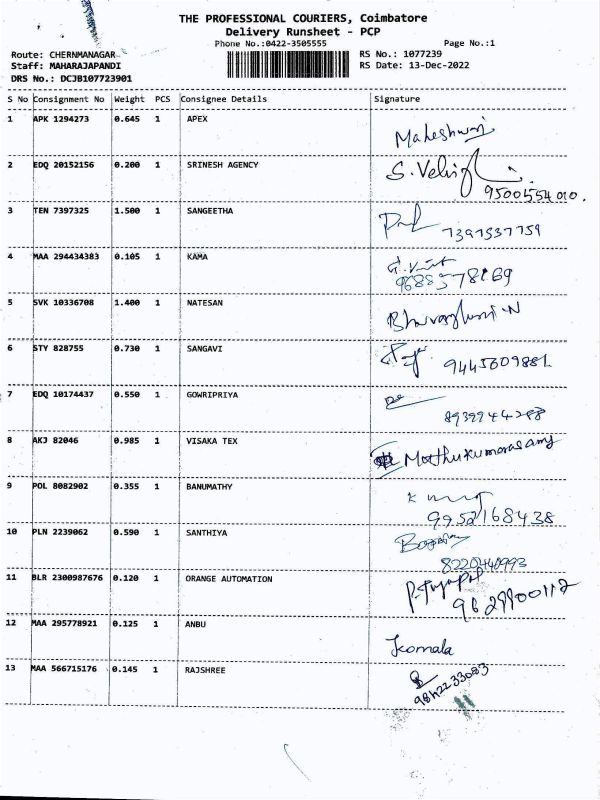 THE PROFESSIONAL COURIERS, Coimbatore
Delivery Runsheet - PCP
Phone No.:0422-3505555 Page No.:1
Route: CHERNMANAGAR RS No.: 1077239
Staff: MAHARAJAPANDI RS Date: 13-Dec-2022
DRS No.: DCJB107723901
S No Consignment No Weight PCS Consignee Details Signature
1 APK 1294273 0.645 1 APEX
Maheshwari
2 EDQ 20152156 0.200 1 SRINESH AGENCY
9500554010.
3 TEN 7397325 1.500 1 SANGEETHA
7397537759
4 MAA 294434383 0.105 1 KAMA
5 SVK 10336708 1.400 1 NATESAN
6 STY 828755 0.730 1 SANGAVI
9445609881
7 EDQ 10174437 0.550 1 GOWRIPRIYA
8939944288
8 AKJ 82046 0.985 1 VISAKA TEX
Motthukumarasamy
9 POL 8082902 0.355 1 BANUMATHY
9952168438
10 PLN 2239062 0.590 1 SANTHIYA
8220440993
11 BLR 2300987676 0.120 1 ORANGE AUTOMATION
9629900112
12 MAA 295778921 0.125 1 ANBU
Komala
13 MAA 566715176 0.145 1 RAJSHREE
9842233083